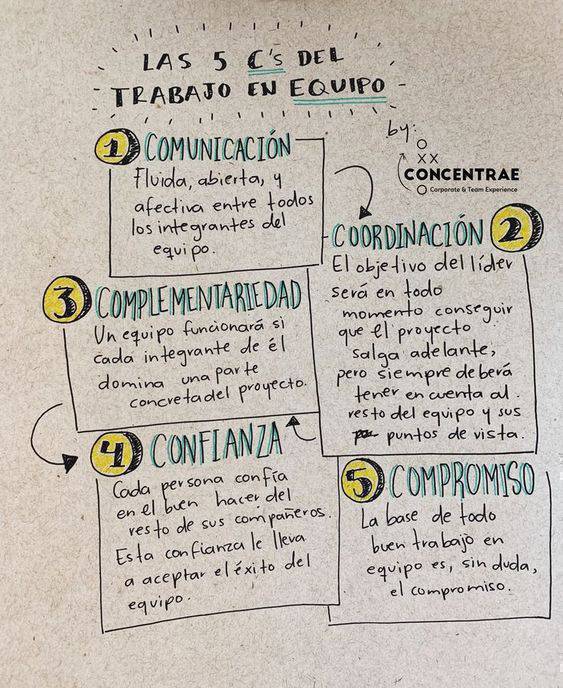 LAS 5 C's DEL
TRABAJO EN EQUIPO
by:
CONCENTRAE
Corporate & Team Experience
1 COMUNICACIÓN
Fluida, abierta, y
afectiva entre todos
los integrantes del
equipo.
COORDINACIÓN 2
El objetivo del líder
será en todo
momento conseguir
que el proyecto
salga adelante,
pero siempre deberá
tener en cuenta al
resto del equipo y sus
puntos de vista.
3 COMPLEMENTARIEDAD
Un equipo funcionará si
cada integrante de él
domina una parte
concreta del proyecto.
4 CONFIANZA
Cada persona confía
en el buen hacer del
resto de sus compañeros.
Esta confianza le lleva
a aceptar el éxito del
equipo.
5 COMPROMISO
La base de todo
buen trabajo en
equipo es, sin duda,
el compromiso.